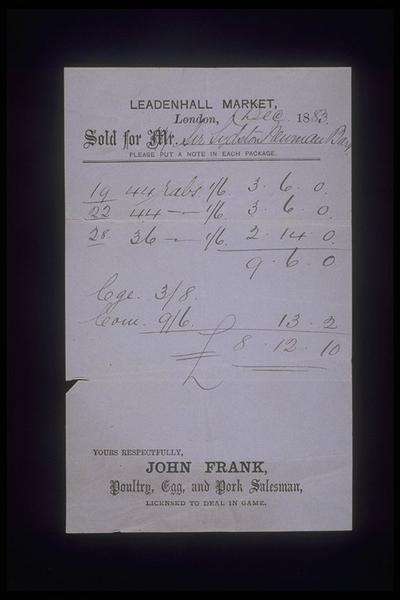 LEADENHALL MARKET,
London, Dec 1883.
Sold for Mr. Sir Lydston Newman Bart
PLEASE PUT A NOTE IN EACH PACKAGE.
19 44 rabs. 1/6. 3. 6. 0.
22 44 — 1/6. 3. 6. 0.
28. 36 — 1/6. 2. 14. 0
9. 6. 0
Cge. 3/8.
Com. 9/6. 13. 2
£ 8. 12. 10
YOURS RESPECTFULLY,
JOHN FRANK,
Poultry, Egg, and Pork Salesman,
LICENSED TO DEAL IN GAME.